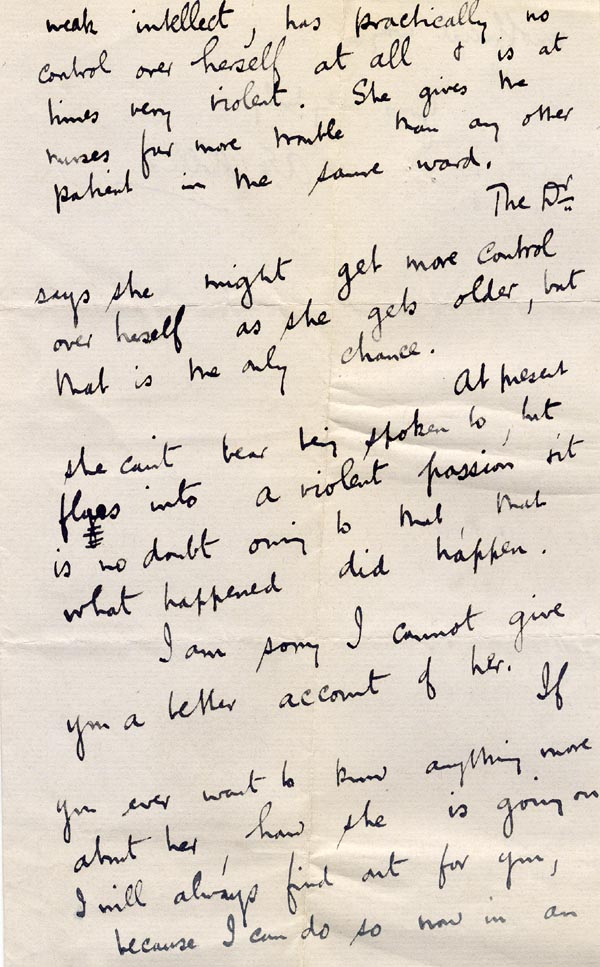 weak intellect, has practically no
control over herself at all & is at
times very violent. She gives the
nurses far more trouble than any other
patient in the same ward.
The Dr
says she might get more control
over herself as she gets older, but
that is the only chance.
At present
she can't bear being spoken to, but
flyes into a violent passion & it
is no doubt owing to that, that
what happened did happen.
I am sorry I cannot give
you a better account of her.
If
you ever want to know anything more
about her, how she is going on
I will always find out for you,
because I can do so now in an